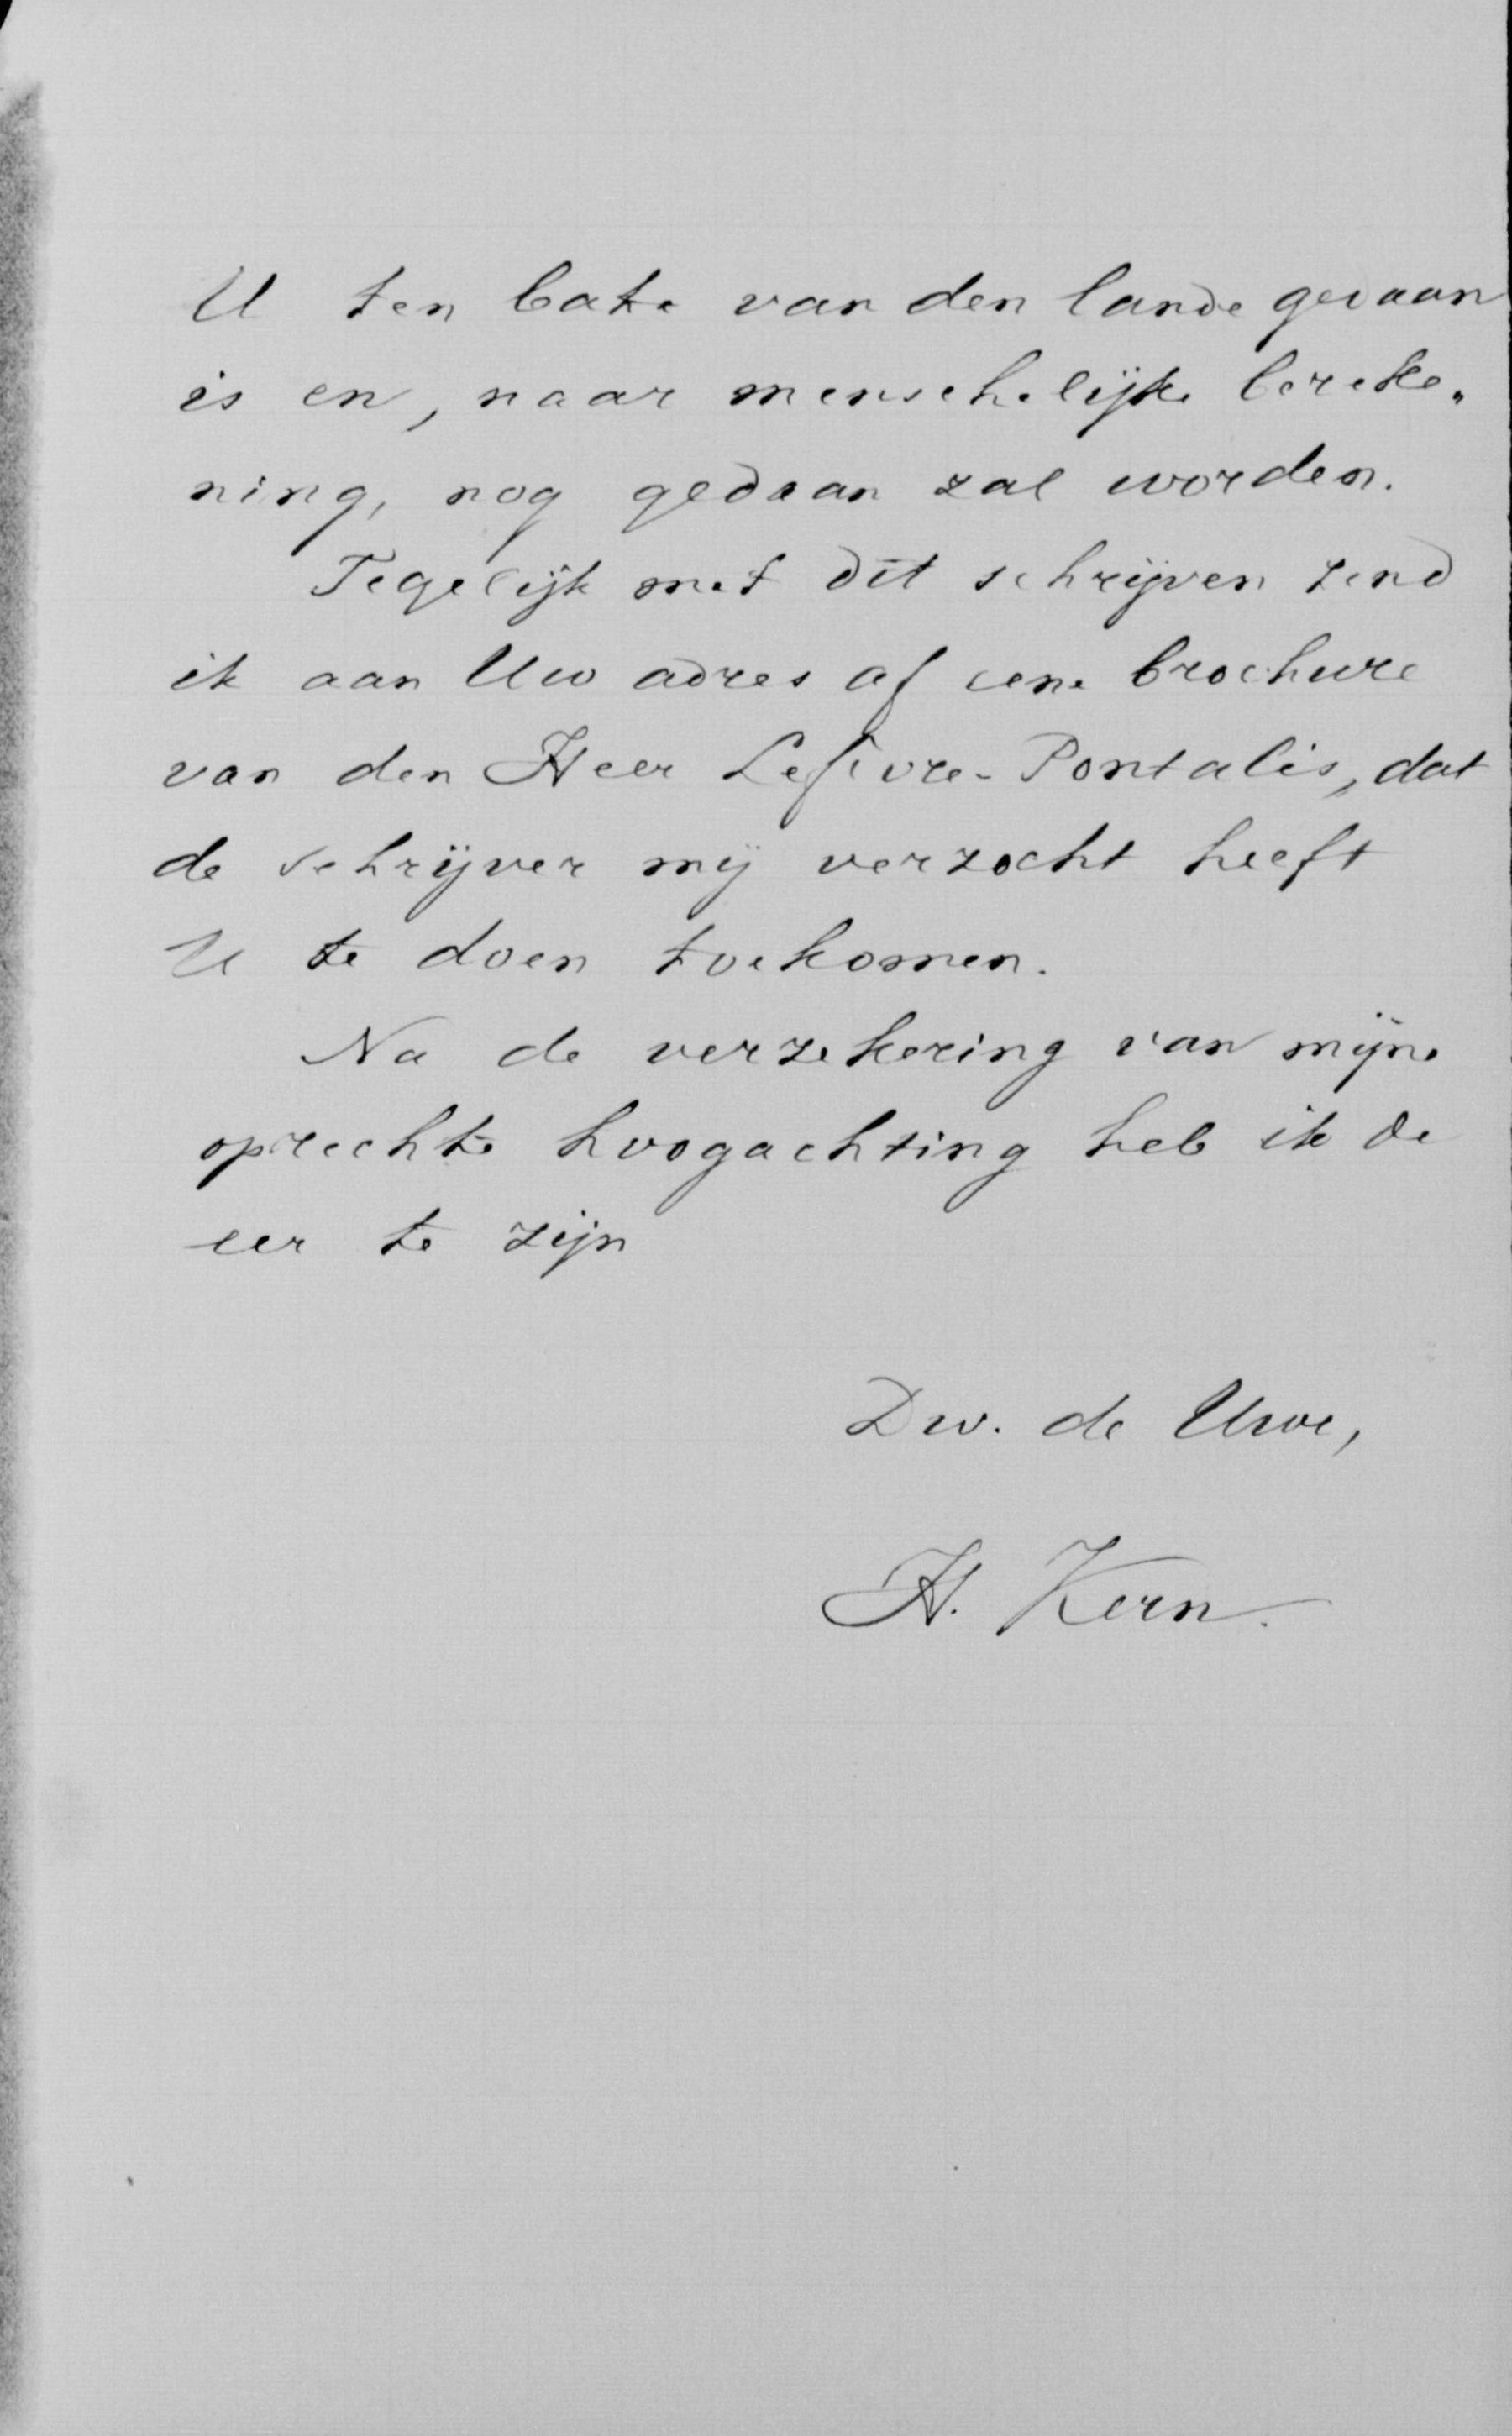 U ten bate van den lande gedaan
is en, naar menschelijke bereke-
ning, nog gedaan zal worden.
Tegelijk met dit schrijven zend
ik aan Uw adres af eene brochure
van den Heer Lefèvre-Pontalis, dat
de schrijver mij verzocht heeft
U te doen toekomen.
Na de verzekering van mijne
oprechte hoogachting heb ik de
eer te zijn
Dw. de Uwe,
H. Kern.